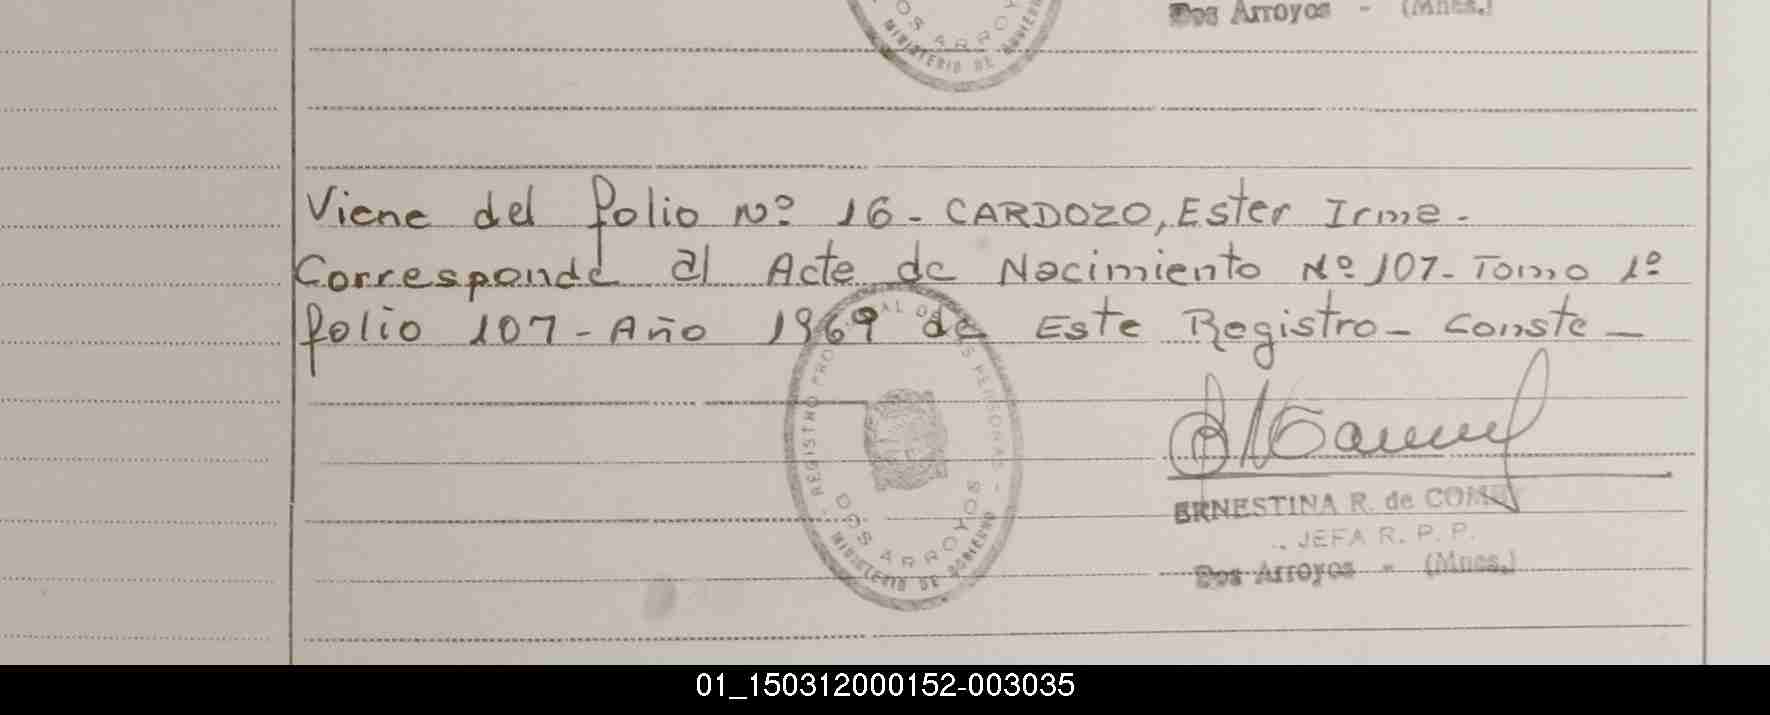 OS ARROYOS
MINISTERIO DE GOBIERNO
Dos Arroyos - (Mnes.)
Viene del folio Nº 16 - CARDOZO, Ester Irme.
Corresponde al Acte de Nacimiento Nº 107- Tomo 1º
folio 107 - Año 1969 de Este Registro - Conste -
REGISTRO PROVINCIAL DE LAS PERSONAS -
DOS ARROYOS
MINISTERIO DE GOBIERNO
ERNESTINA R. de
JEFA R. P. P.
Dos Arroyos - (Mnes.)
01_150312000152-003035